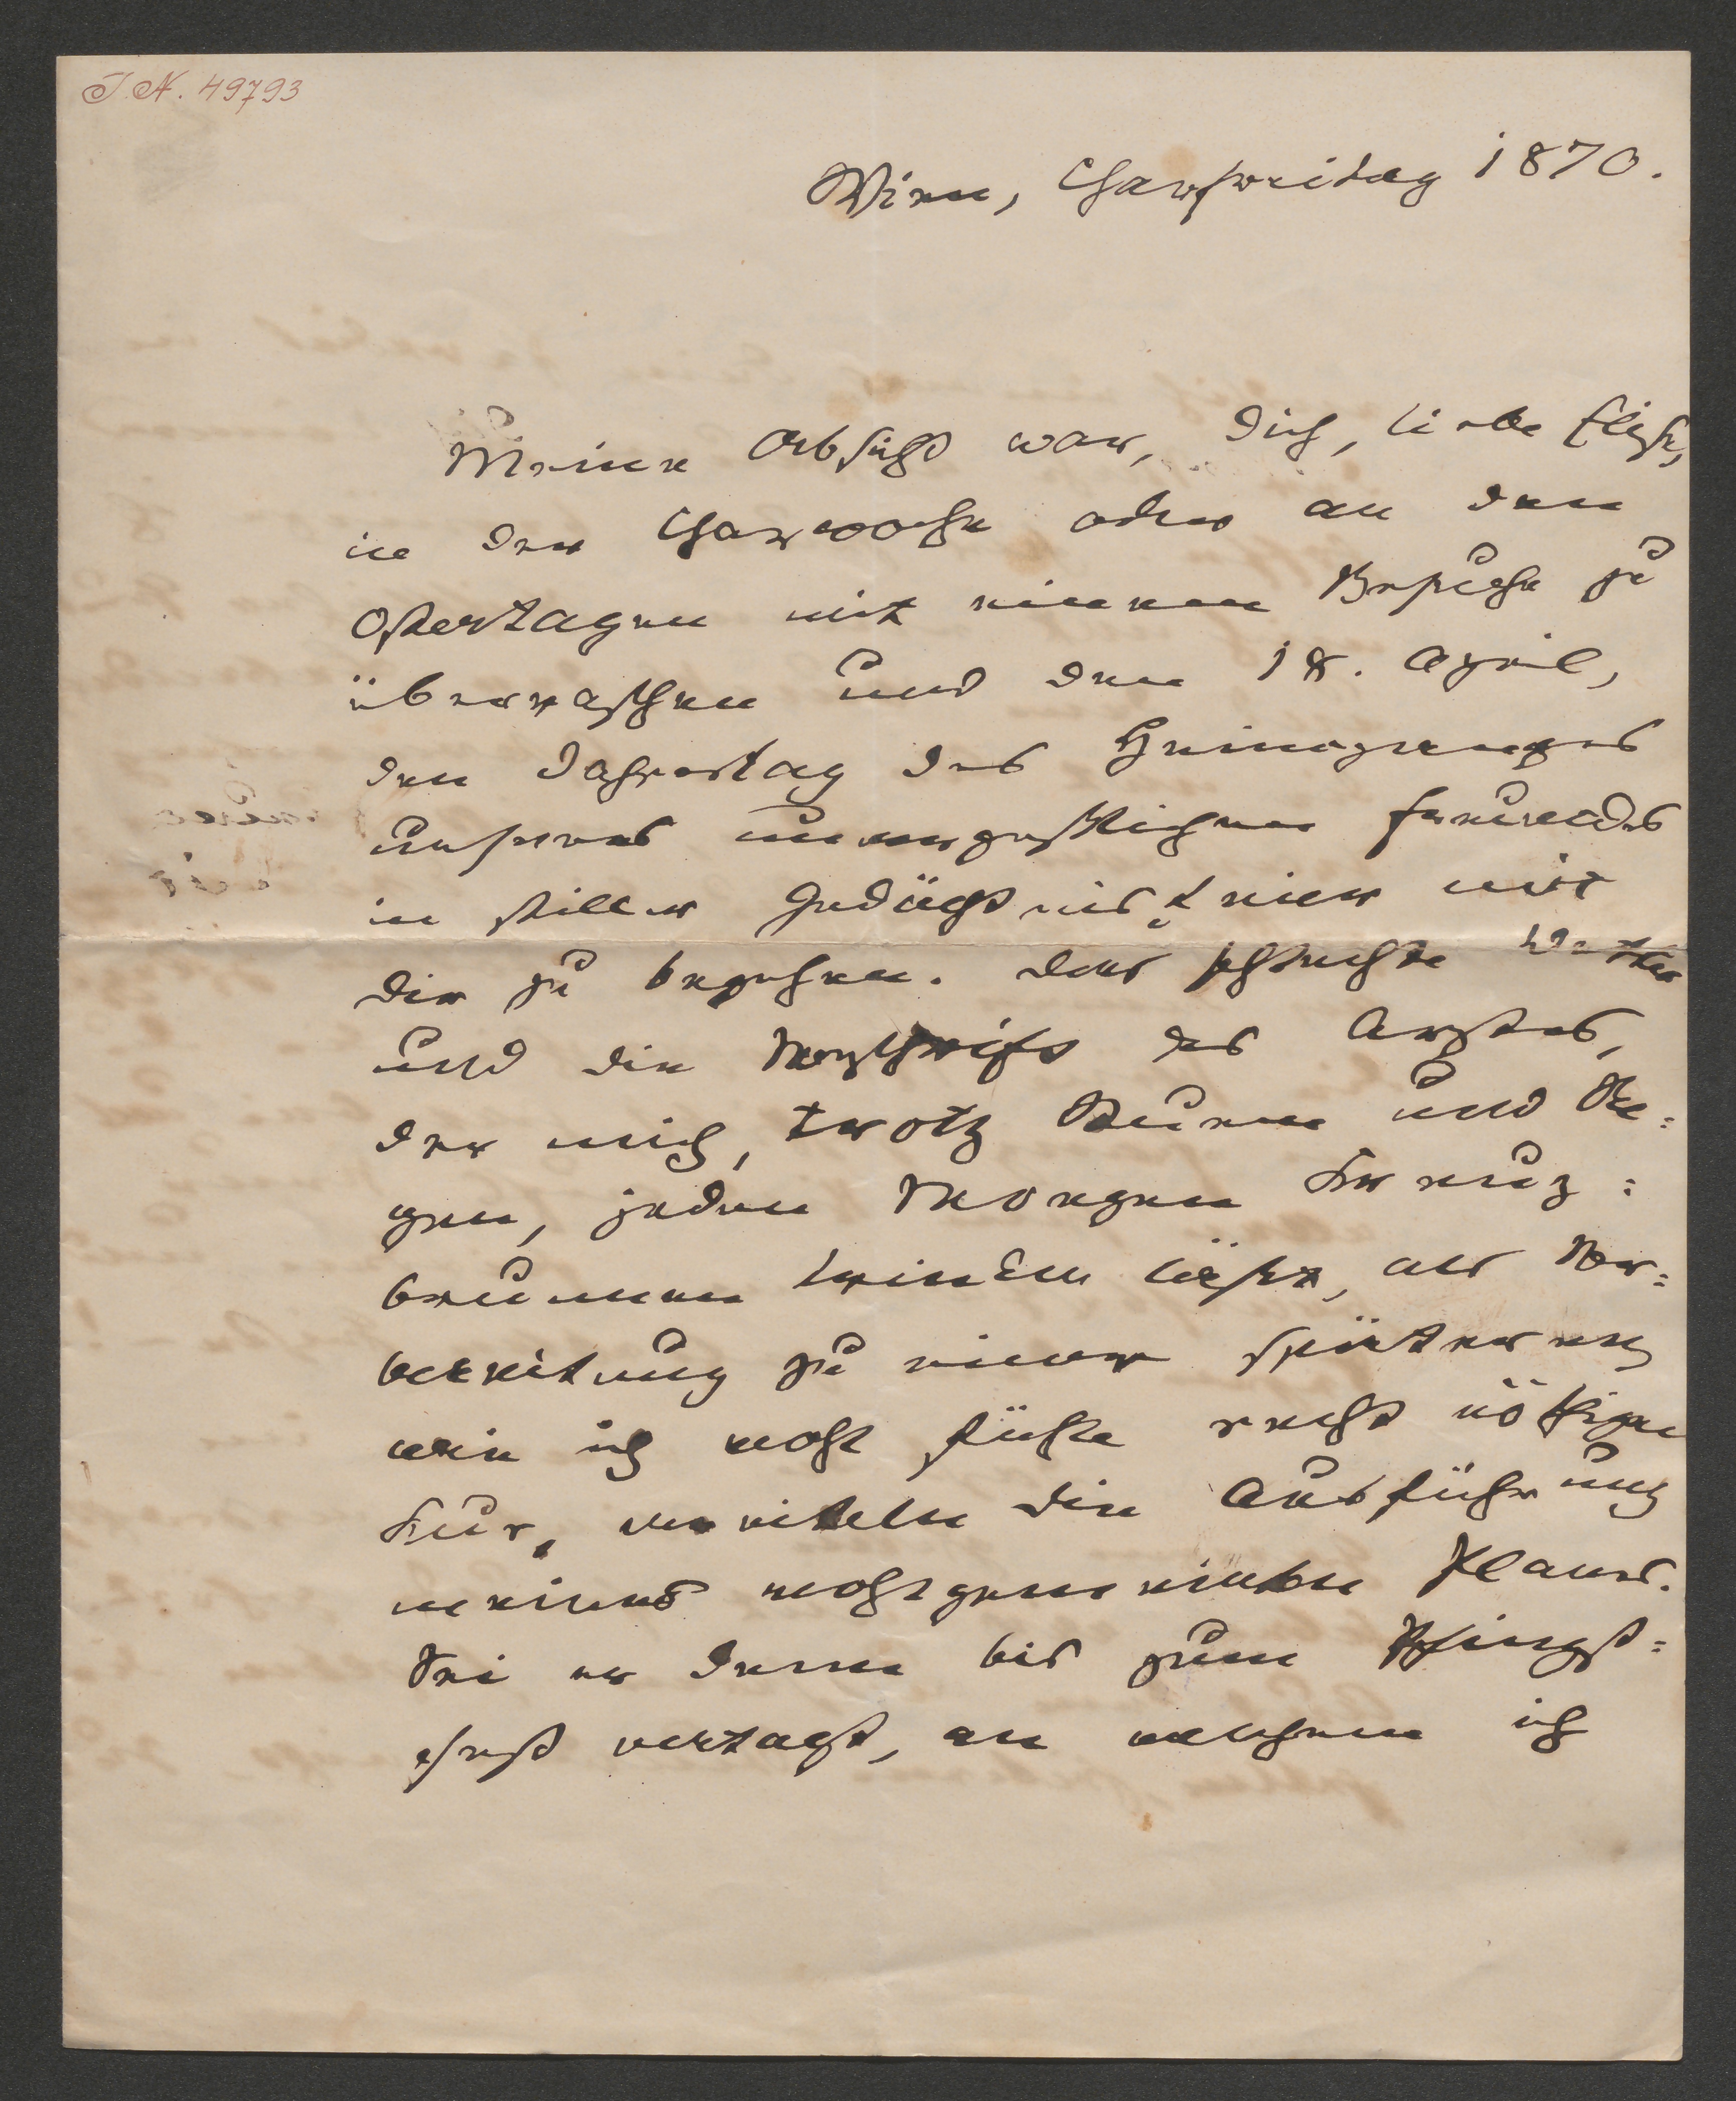 I. N. 49793
Wien, Charfreitag 1870.
Meine Absicht war, Dich, liebe Elise,
in der Charwoche oder an den
Ostertagen mit einem Besuche zu
überraschen und den 18. April,
den Jahrestag des Heimganges
unseres unvergeßlichen Freundes
in stiller Gedächtnisfeier mit
Dir zu begehen. Das schlechte Wetter
und die Vorschrift des Arztes,
der mich, trotz Sturm und Re=
gen, jeden Morgen Kreuz=
brunnen trinken läßt, als Vor=
bereitung zu einer späteren
wie ich wohl fühle recht nöthigen
Kur, vereiteln die Ausführung
meines wohlgemeinten Planes.
Sei er denn bis zum Pfingst=
feste vertagt, an welchem ich